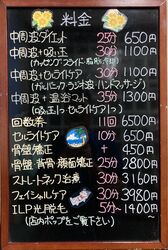 料金
中周波ダイエット 25分 650円
中周波+吸い玉 30分 1100円
(カッピング・スライド・固定 分)
中周波+セルライトケア 30分 1100円
(ガルバニック・ラジオ波・ハンドマッサージ)
中周波+温浴コース 35分 1300円
(吸い玉 or セルライトケア)
回数券 11回 6500円
セルライトケア 10分 650円
骨盤矯正 + 450円
骨盤・背筋・猫背矯正 25分 2800円
ストレートネック治療 30分 3160円
フェイシャルケア 30分 3980円
ILP光脱毛 5分~ 14000円
(店内ポップをご覧下さい)